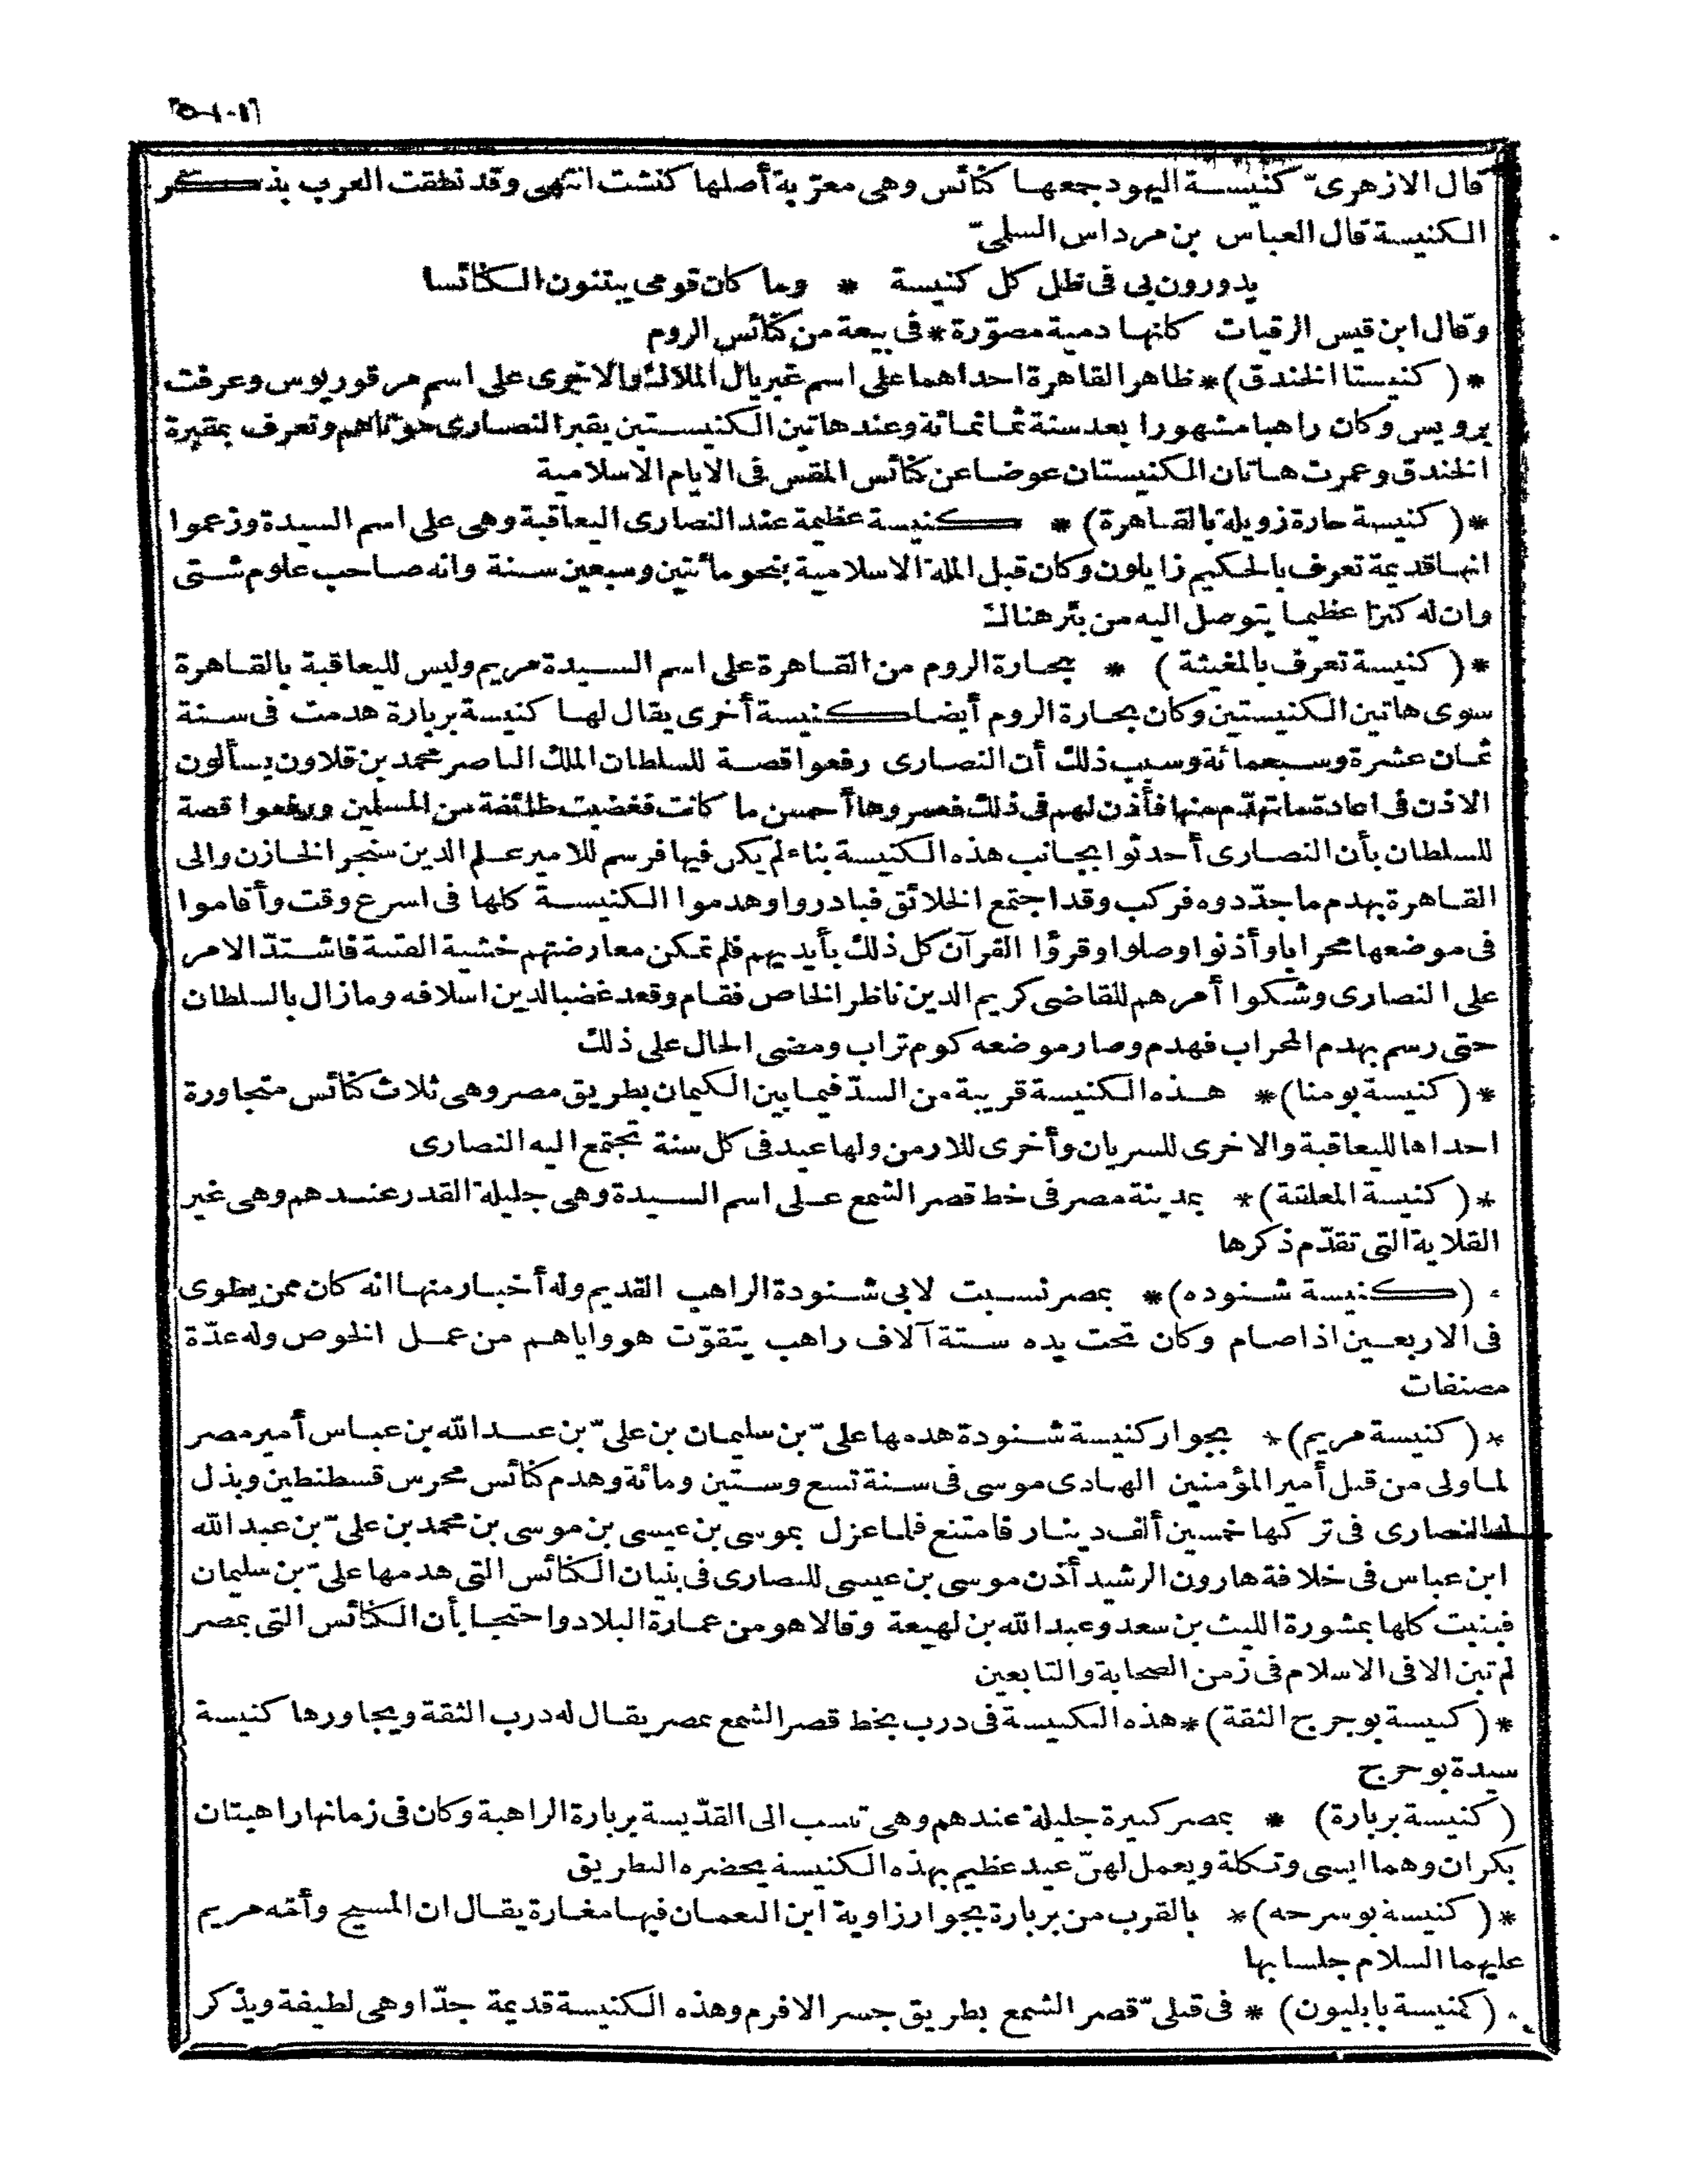 قال الازهرىّ كنيسة اليهود جمعها كنائس وهى معرّبة أصلها كنشت انتهى وقد نطقت العرب بذكر
الكنيسة قال العباس بن مرداس السلمىّ
يدورون بى فى ظل كل كنيسة * وما كان قومى يبتنون الكنائسا
وقال ابن قيس الرقيات كانها دمية مصوّرة * فى بيعة من كنائس الروم
*( كنيستا الخندق )* ظاهر القاهرة احداهما على اسم غبريال الملاك والاخرى على اسم مرقوريوس وعرفت
برويس وكان راهبا مشهورا بعد سنة ثمانمائة وعند هاتين الكنيستين يقبر النصارى موتاهم وتعرف بمقبرة
الخندق وعمرت هاتان الكنيستان عوضا عن كنائس المقس فى الايام الاسلامية
*( كنيسة حارة زويلة بالقاهرة ) * كنيسة عظيمة عند النصارى اليعاقبة وهى على اسم السيدة وزعموا
انها قديمة تعرف بالحكيم زايلون وكان قبل الملة الاسلامية بنحو مائتين وسبعين سنة وانه صاحب علوم شتى
وان له كنزا عظيما يتوصل اليه من بئر هناك
*( كنيسة تعرف بالمغيثة ) * بحارة الروم من القاهرة على اسم السيدة مريم وليس لليعاقبة بالقاهرة
سوى هاتين الكنيستين وكان بحارة الروم أيضا كنيسة أخرى يقال لها كنيسة بربارة هدمت فى سنة
ثمان عشرة وسبعمائة وسبب ذلك أن النصارى رفعوا قصة للسلطان الملك الناصر محمد بن قلاون يسألون
الاذن فى اعادة ماتهدّم منها فأذن لهم فى ذلك فعمروها أحسن ما كانت فغضبت طائفة من المسلمين ورفعوا قصة
للسلطان بأن النصارى أحدثوا بجانب هذه الكنيسة بناء لم يكن فيها فرسم للامير علم الدين سنجر الخازن والى
القاهرة بهدم ما جدّدوه فركب وقد اجتمع الخلائق فبادروا وهدموا الكنيسة كلها فى اسرع وقت وأقاموا
فى موضعها محرابا وأذنوا وصلوا وقرؤا القرآن كل ذلك بأيديهم فلم تمكن معارضتهم خشية الفتنة فاشتدّ الامر
على النصارى وشكوا أمرهم للقاضى كريم الدين ناظر الخاص فقام وقعد غضبا لدين اسلافه ومازال بالسلطان
حتى رسم بهدم المحراب فهدم وصار موضعه كوم تراب ومضى الحال على ذلك
*( كنيسة بومنا )* هذه الكنيسة قريبة من السدّ فيما بين الكيمان بطريق مصر وهى ثلاث كنائس متجاورة
احداها لليعاقبة والاخرى للسريان وأخرى للارمن ولها عيد فى كل سنة تجتمع اليه النصارى
*( كنيسة المعلقة )* بمدينة مصر فى خط قصر الشمع على اسم السيدة وهى جليلة القدر عندهم وهى غير
القلاية التى تقدّم ذكرها
(كنيسة شنوده)* بمصر نسبت لابى شنودة الراهب القديم وله أخبار منها انه كان ممن يطوى
فى الاربعين اذا صام وكان تحت يده ستة آلاف راهب يتقوّت هو واياهم من عمل الخوص وله عدّة
مصنفات
*( كنيسة مريم )* بجوار كنيسة شنودة هدمها علىّ بن سليمان بن علىّ بن عبد الله بن عباس أمير مصر
لما ولى من قبل أمير المؤمنين الهادى موسى فى سنة تسع وستين ومائة وهدم كنائس محرس قسطنطين وبذل
له النصارى فى تركها خمسين ألف دينار فامتنع فلما عزل بموسى بن عيسى بن موسى بن محمد بن علىّ بن عبد الله
ابن عباس فى خلافة هارون الرشيد أذن موسى بن عيسى للنصارى فى بنيان الكنائس التى هدمها علىّ بن سليمان
فبنيت كلها بمشورة الليث بن سعد وعبد الله بن لهيعة وقالا هو من عمارة البلاد واحتجا بأن الكنائس التى بمصر
لم تبن الا فى الاسلام فى زمن الصحابة والتابعين
*( كنيسة بوجرج الثقة )* هذه الكنيسة فى درب بخط قصر الشمع بمصر يقال له درب الثقة ويجاورها كنيسة
سيدة بوجرج
( كنيسة بربارة ) * بمصر كبيرة جليلة عندهم وهى تنسب الى القدّيسة بربارة الراهبة وكان فى زمانها راهبتان
بكران وهما ايسى وتكلة ويعمل لهنّ عيد عظيم بهذه الكنيسة يحضره البطريق
*( كنيسة بوسرجه )* بالقرب من بربارة بجوار زاوية ابن النعمان فيها مغارة يقال ان المسيح وأمّه مريم
عليهما السلام جلسا بها
( كنيسة بابليون ) * فى قبلىّ قصر الشمع بطريق جسر الافرم وهذه الكنيسة قديمة جدّا وهى لطيفة ويذكر